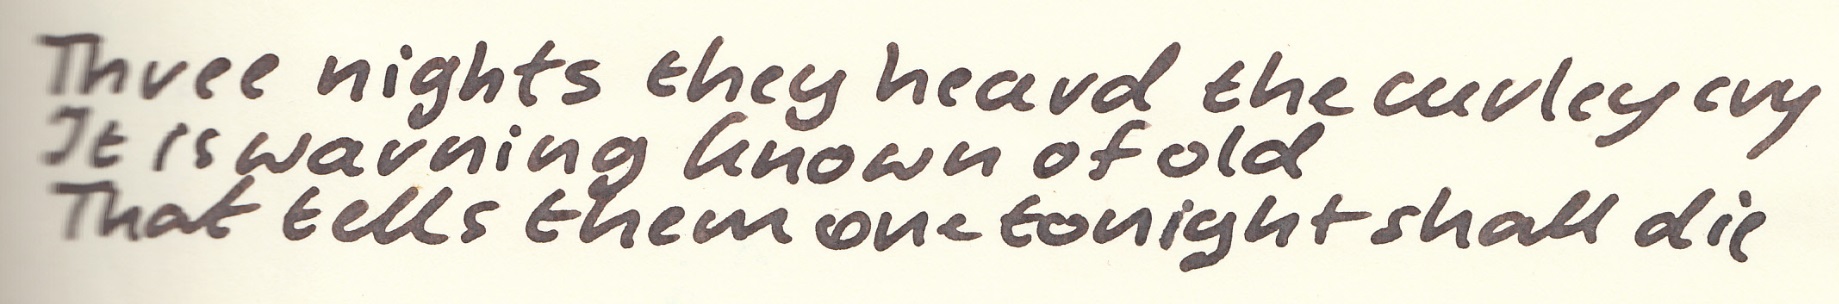 Three nights they heard the curley cry
It is warning known of old
That tells them one tonight shall die